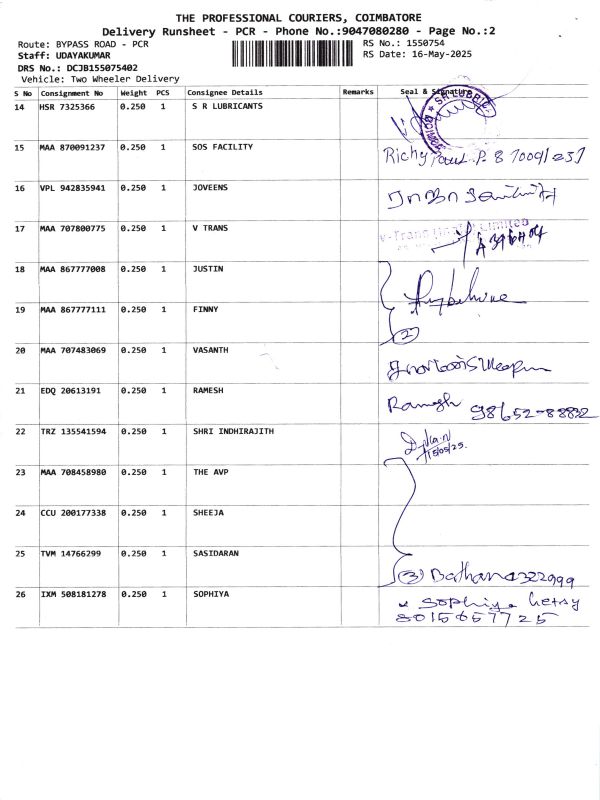 THE PROFESSIONAL COURIERS, COIMBATORE
Delivery Runsheet - PCR - Phone No.:9047080280 - Page No.:2
Route: BYPASS ROAD - PCR RS No.: 1550754
Staff: UDAYAKUMAR RS Date: 16-May-2025
DRS No.: DCJB155075402
Vehicle: Two Wheeler Delivery
S No Consignment No Weight PCS Consignee Details Remarks Seal & Signature
14 HSR 7325366 0.250 1 S R LUBRICANTS
15 MAA 870091237 0.250 1 SOS FACILITY
Richy Paul. P. 8
16 VPL 942835941 0.250 1 JOVEENS
17 MAA 707800775 0.250 1 V TRANS
18 MAA 867777008 0.250 1 JUSTIN
19 MAA 867777111 0.250 1 FINNY
(2)
20 MAA 707483069 0.250 1 VASANTH
21 EDQ 20613191 0.250 1 RAMESH
Ramesh
22 TRZ 135541594 0.250 1 SHRI INDHIRAJITH
23 MAA 708458980 1 0.250 THE AVP
24 CCU 200177338 0.250 1 SHEEJA
25 TVM 14766299 0.250 1 SASIDARAN
(3)
26 IXM 508181278 0.250 1 SOPHIYA
Sophiya
8015657725